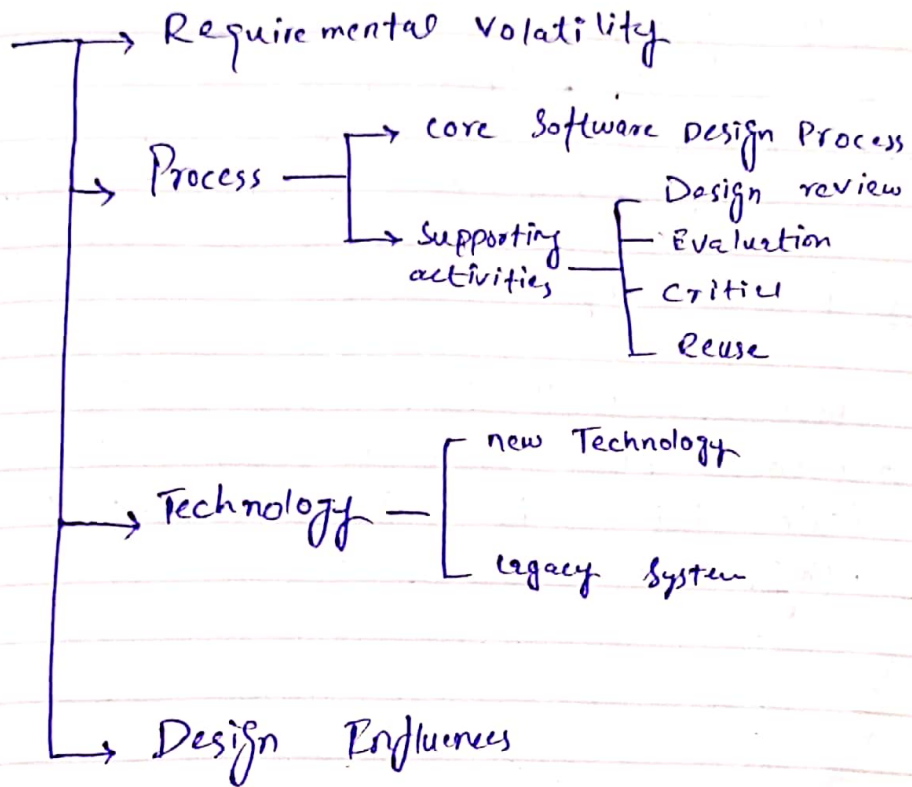 Requiremental Volatility
Process
core Software Design Process
Supporting
activities
Design review
Evaluation
Reuse
Technology
new Technology
Legacy System
Design Influences